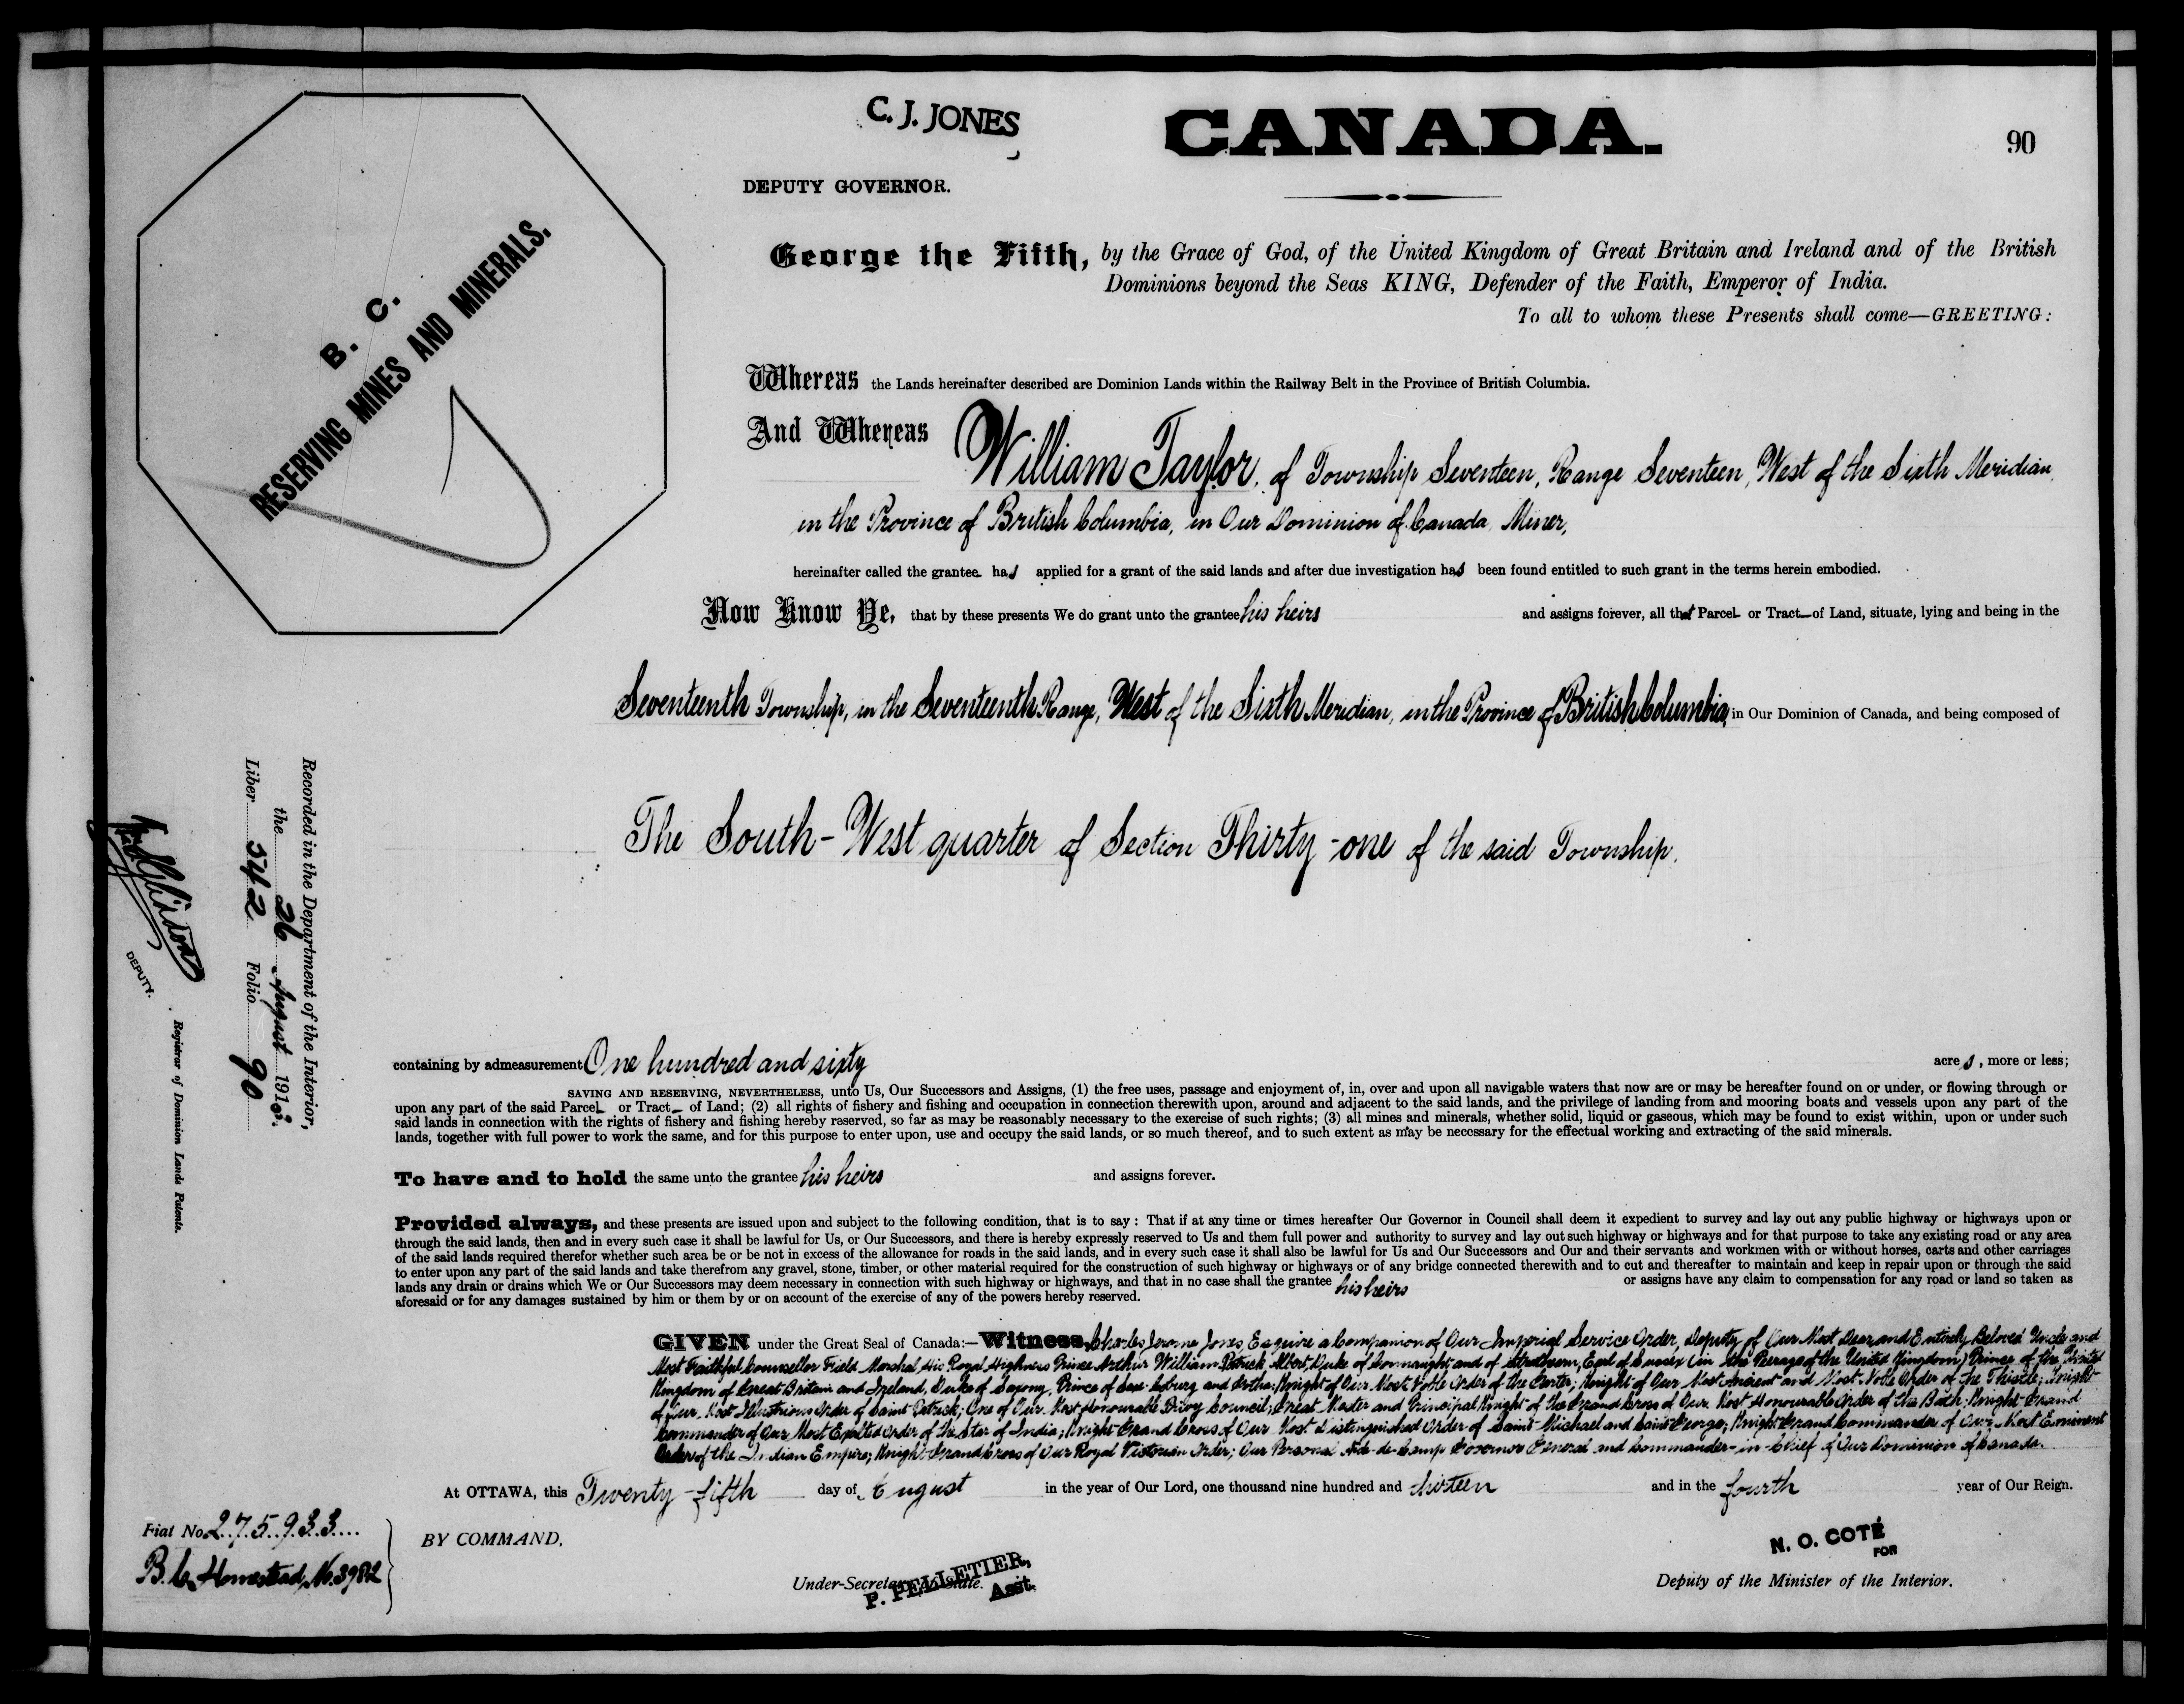 C. J. JONES
CANADA.
90
DEPUTY GOVERNOR.
B. C.
RESERVING MINES AND MINERALS.
George the Fifth, by the Grace of God, of the United Kingdom of Great Britain and Ireland and of the British
Dominions beyond the Seas KING, Defender of the Faith, Emperor of India.
To all to whom these Presents shall come—GREETING:
Whereas the Lands hereinafter described are Dominion Lands within the Railway Belt in the Province of British Columbia.
And Whereas William Taylor, of Township Seventeen, Range Seventeen, West of the Sixth Meridian,
in the Province of British Columbia, in Our Dominion of Canada, Miner,
hereinafter called the grantee has applied for a grant of the said lands and after due investigation has been found entitled to such grant in the terms herein embodied.
Now Know Ye, that by these presents We do grant unto the grantee his heirs and assigns forever, all that Parcel or Tract of Land, situate, lying and being in the
Seventeenth Township, in the Seventeenth Range, West of the Sixth Meridian, in the Province of British Columbia, in Our Dominion of Canada, and being composed of
The South-West quarter of Section Thirty-one of the said Township.
containing by admeasurement One hundred and sixty acres, more or less;
SAVING AND RESERVING, NEVERTHELESS, unto Us, Our Successors and Assigns, (1) the free uses, passage and enjoyment of, in, over and upon all navigable waters that now are or may be hereafter found on or under, or flowing through or
upon any part of the said Parcel or Tract of Land; (2) all rights of fishery and fishing and occupation in connection therewith upon, around and adjacent to the said lands, and the privilege of landing from and mooring boats and vessels upon any part of the
said lands in connection with the rights of fishery and fishing hereby reserved, so far as may be reasonably necessary to the exercise of such rights; (3) all mines and minerals, whether solid, liquid or gaseous, which may be found to exist within, upon or under such
lands, together with full power to work the same, and for this purpose to enter upon, use and occupy the said lands, or so much thereof, and to such extent as may be necessary for the effectual working and extracting of the said minerals.
To have and to hold the same unto the grantee his heirs and assigns forever.
Provided always, and these presents are issued upon and subject to the following condition, that is to say: That if at any time or times hereafter Our Governor in Council shall deem it expedient to survey and lay out any public highway or highways upon or
through the said lands, then and in every such case it shall be lawful for Us, or Our Successors, and there is hereby expressly reserved to Us and them full power and authority to survey and lay out such highway or highways and for that purpose to take any existing road or any area
of the said lands required therefor whether such area be or be not in excess of the allowance for roads in the said lands, and in every such case it shall also be lawful for Us and Our Successors and Our and their servants and workmen with or without horses, carts and other carriages
to enter upon any part of the said lands and take therefrom any gravel, stone, timber, or other material required for the construction of such highway or highways or of any bridge connected therewith and to cut and thereafter to maintain and keep in repair upon or through the said
lands any drain or drains which We or Our Successors may deem necessary in connection with such highway or highways, and that in no case shall the grantee his heirs or assigns have any claim to compensation for any road or land so taken as
aforesaid or for any damages sustained by him or them by or on account of the exercise of any of the powers hereby reserved.
GIVEN under the Great Seal of Canada:—Witness, Charles Jerome Jones, Esquire a Companion of Our Imperial Service Order, Deputy of Our Most Dear and Entirely Beloved Uncle and
Most Faithful Counsellor Field Marshal, His Royal Highness Prince Arthur William Patrick Albert, Duke of Connaught and of Strathearn, Earl of Sussex (in the Peerage of the United Kingdom) Prince of the United
Kingdom of Great Britain and Ireland, Duke of Saxony, Prince of Saxe-Coburg and Gotha; Knight of Our Most Noble Order of the Garter; Knight of Our Most Ancient and Most Noble Order of the Thistle; Knight
of Our Most Illustrious Order of Saint Patrick; One of Our Most Honourable Privy Council; Great Master and Principal Knight of the Grand Cross of Our Most Honourable Order of the Bath; Knight Grand
Commander of Our Most Exalted Order of the Star of India; Knight Grand Cross of Our Most Distinguished Order of Saint Michael and Saint George; Knight Grand Commander of Our Most Eminent
Order of the Indian Empire; Knight Grand Cross of Our Royal Victorian Order; Our Personal Aide-de-Camp Governor General and Commander-in-Chief of Our Dominion of Canada.
At OTTAWA, this Twenty-fifth day of August in the year of Our Lord, one thousand nine hundred and thirteen and in the fourth year of Our Reign.
Fiat No. 275933
B.C. Homestead, No. 3982
BY COMMAND,
P. PELLETIER,
Under-Secretary of State.
Asst.
N. O. COTÉ
FOR
Deputy of the Minister of the Interior.
Recorded in the Department of the Interior,
the 26 August 1913.
Liber 542 Folio 90
DEPUTY.
Registrar of Dominion Lands Patents.